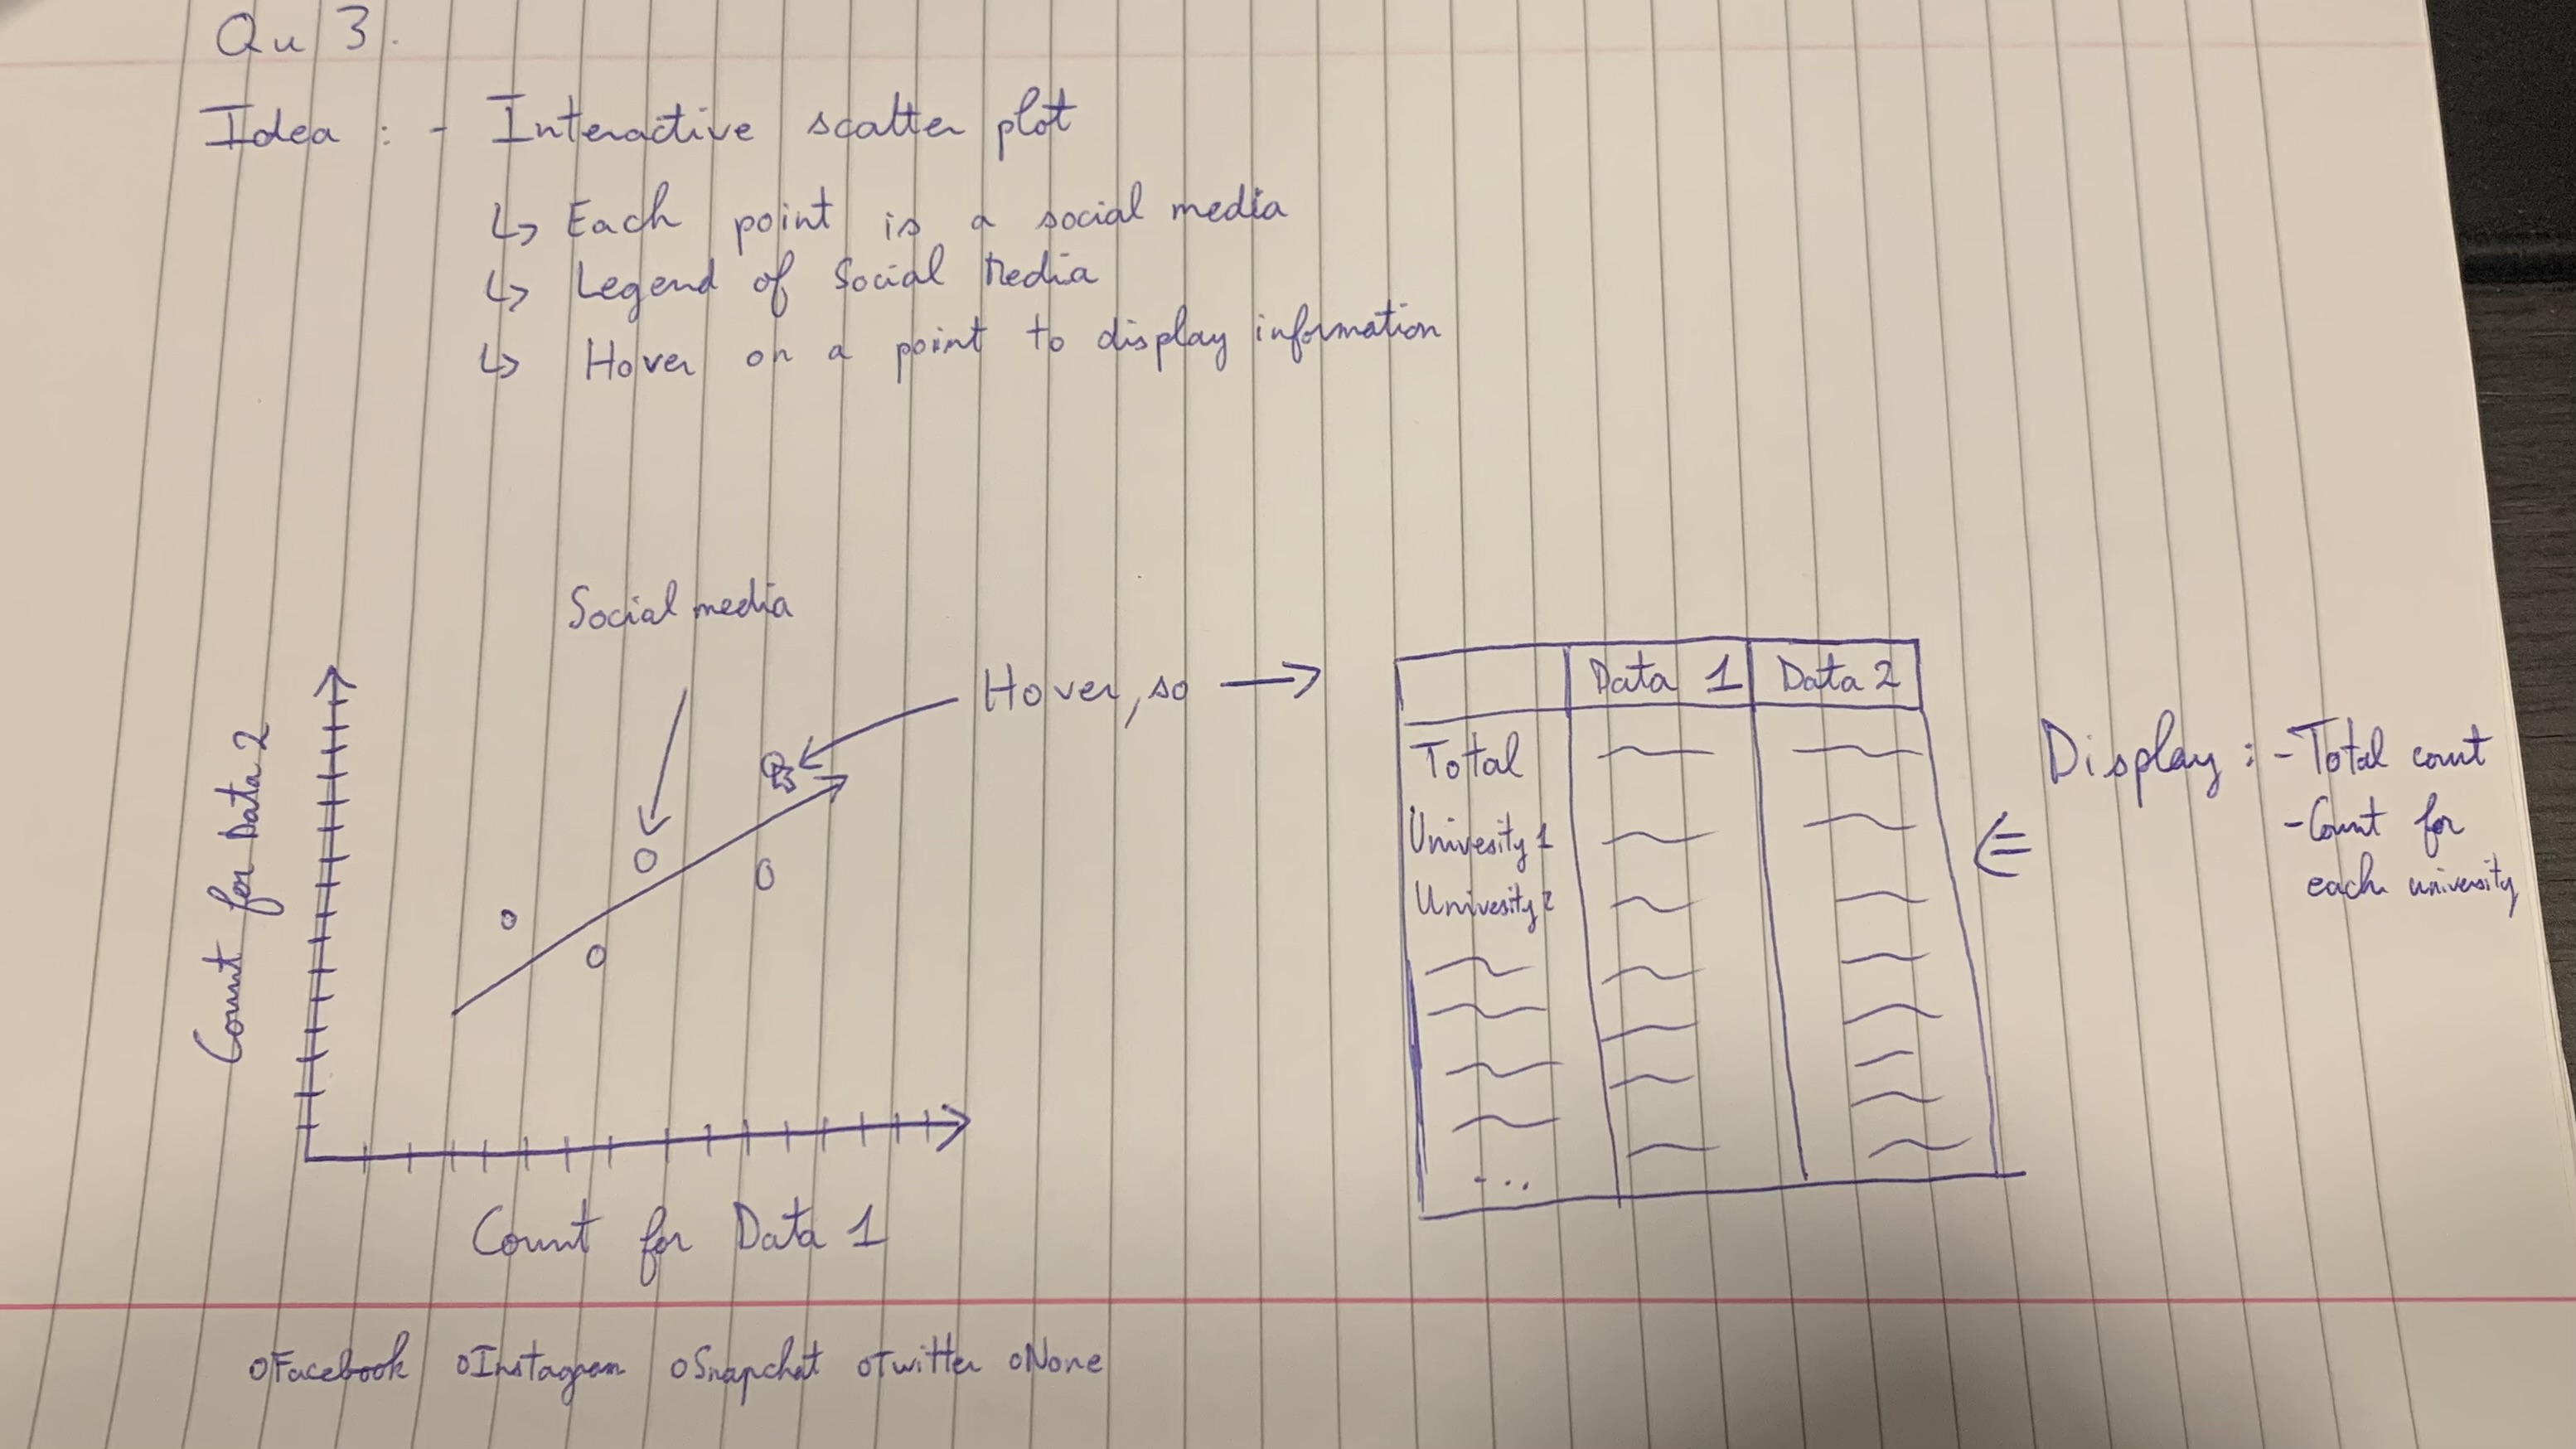 Qu 3.
Idea : - Interactive scatter plot
↳ Each point is a social media
↳ Legend of Social Media
↳ Hover on a point to display information
Social media
Hover, so →
Count for Data 2
Count for Data 1
Data 1 Data 2
Total
Univesity 1
Univesity 2
...
Display : - Total count
- Count for
each university
o Facebook o Instagram o Snapchat o Twitter o None